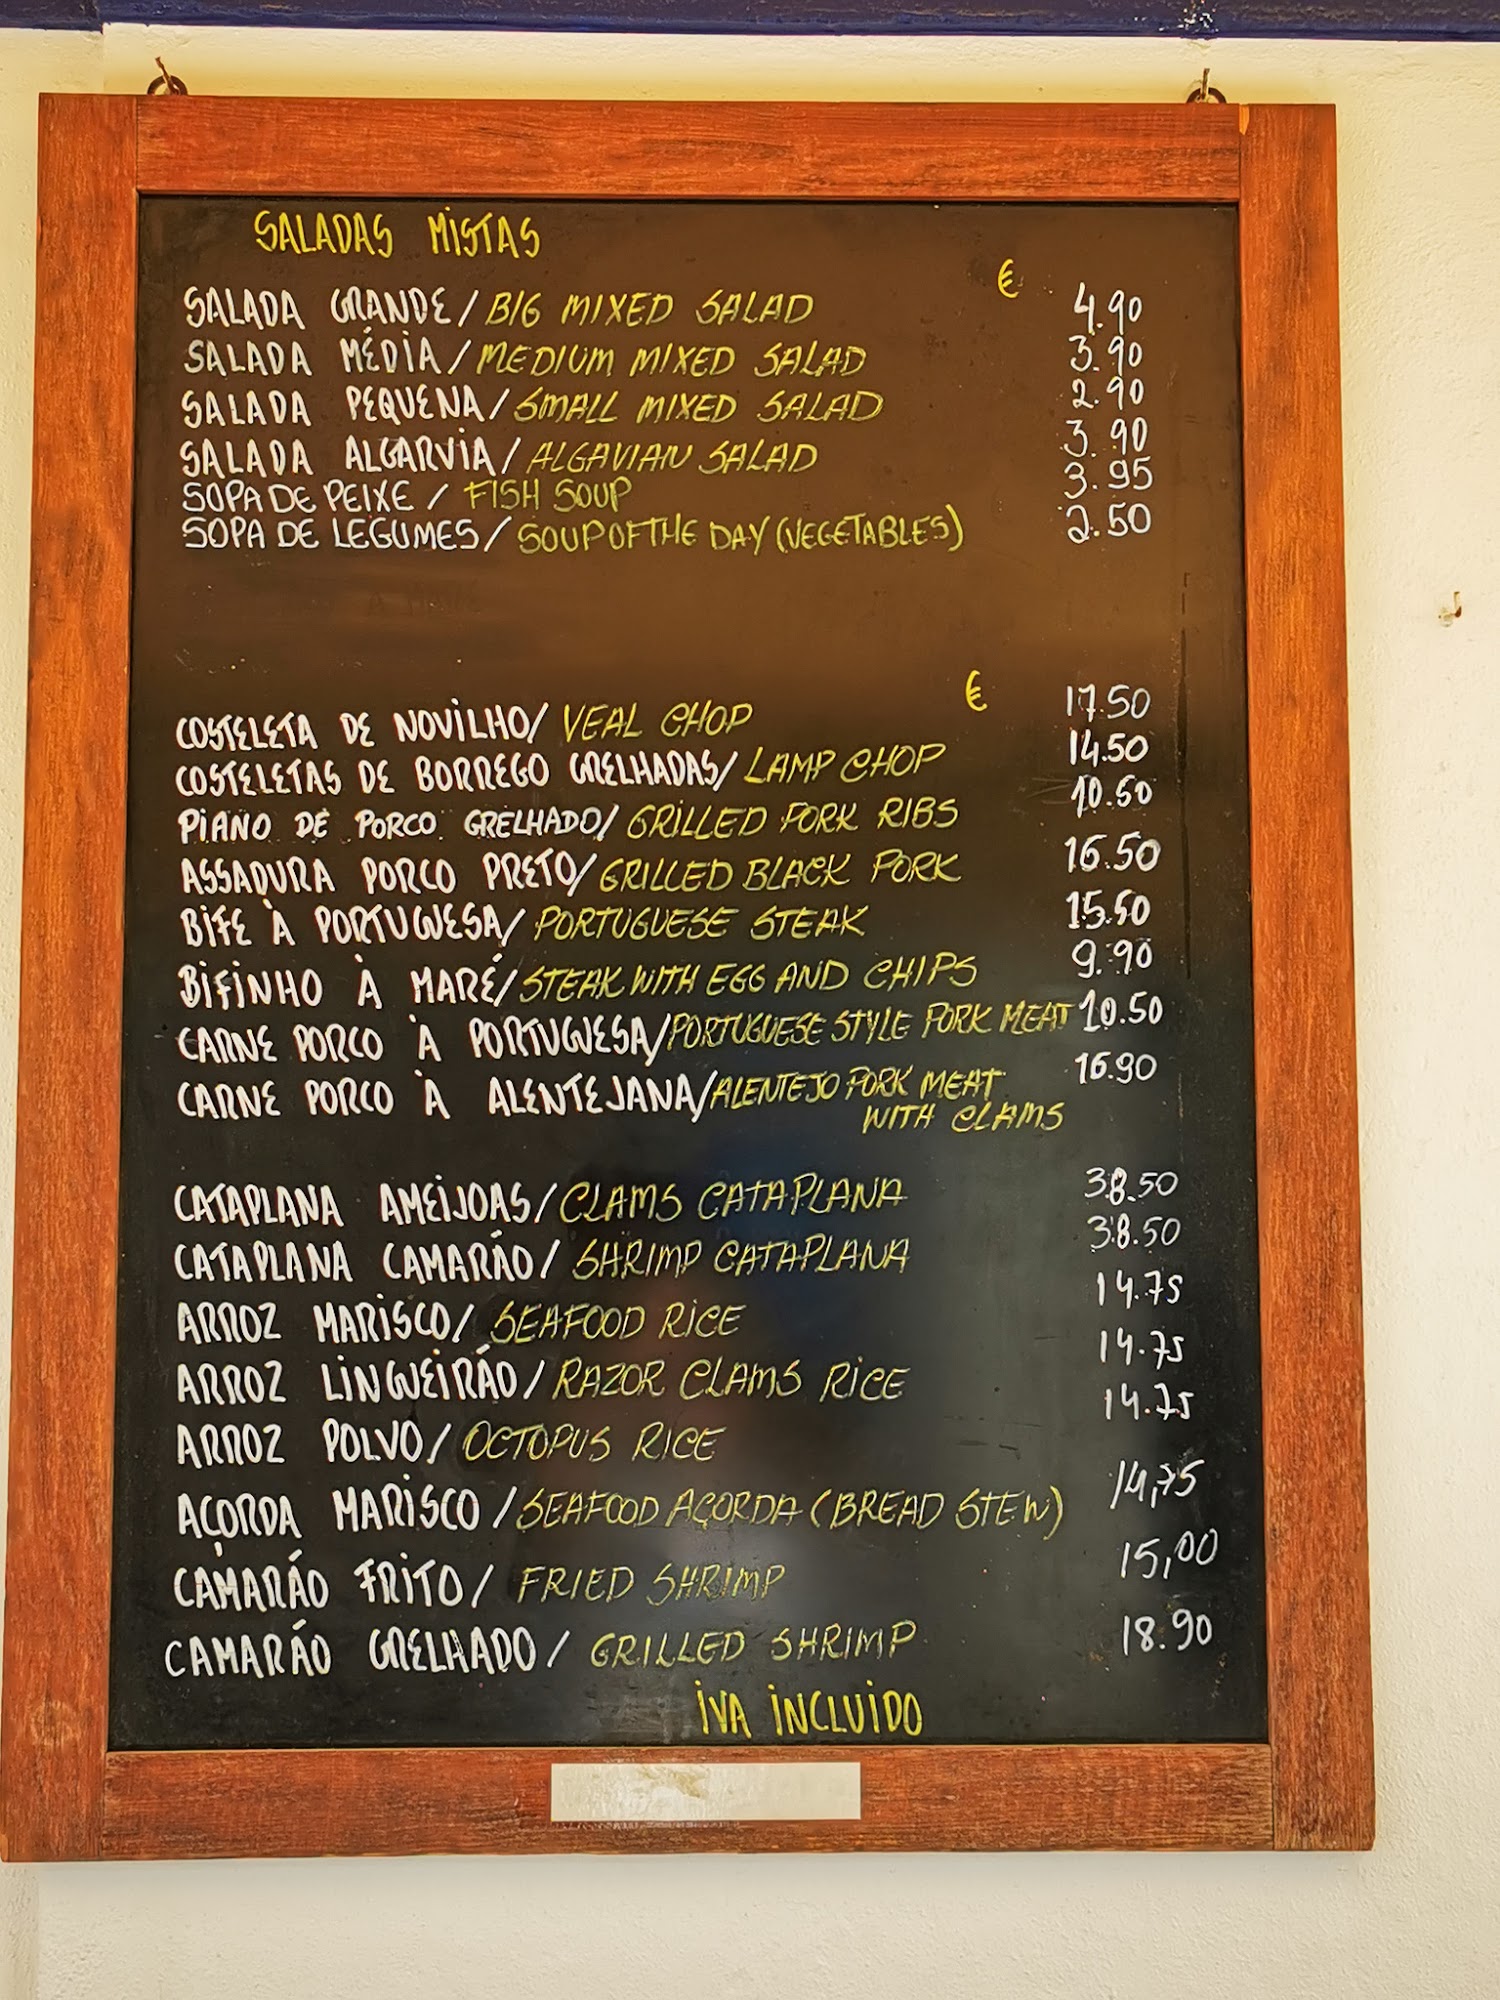 SALADAS MISTAS
€
SALADA GRANDE/BIG MIXED SALAD 4.90
SALADA MÉDIA/MEDIUM MIXED SALAD 3.90
SALADA PEQUENA/SMALL MIXED SALAD 2.90
SALADA ALGARVIA/ALGAVIAN SALAD 3.90
SOPA DE PEIXE / FISH SOUP 3.95
SOPA DE LEGUMES/SOUP OF THE DAY (VEGETABLES) 2.50
€
COSTELETA DE NOVILHO/ VEAL CHOP 17.50
COSTELETAS DE BORREGO GRELHADAS/LAMP CHOP 14.50
PIANO DE PORCO GRELHADO/GRILLED PORK RIBS 10.50
ASSADURA PORCO PRETO/GRILLED BLACK PORK 16.50
BIFE À PORTUGUESA/PORTUGUESE STEAK 15.50
BIFINHO À MARÉ/STEAK WITH EGG AND CHIPS 9.90
CARNE PORCO À PORTUGUESA/PORTUGUESE STYLE PORK MEAT 10.50
CARNE PORCO À ALENTEJANA/ALENTEJO PORK MEAT 16.90
WITH CLAMS
CATAPLANA AMEIJOAS/CLAMS CATAPLANA 38.50
CATAPLANA CAMARÃO/ SHRIMP CATAPLANA 38.50
ARROZ MARISCO/ SEAFOOD RICE 14.75
ARROZ LINGUEIRÃO/RAZOR CLAMS RICE 14.75
ARROZ POLVO/ OCTOPUS RICE 14.75
AÇORDA MARISCO/SEAFOOD AÇORDA (BREAD STEW) 14,75
CAMARÃO FRITO/ FRIED SHRIMP 15,00
CAMARÃO GRELHADO/ GRILLED SHRIMP 18.90
IVA INCLUIDO